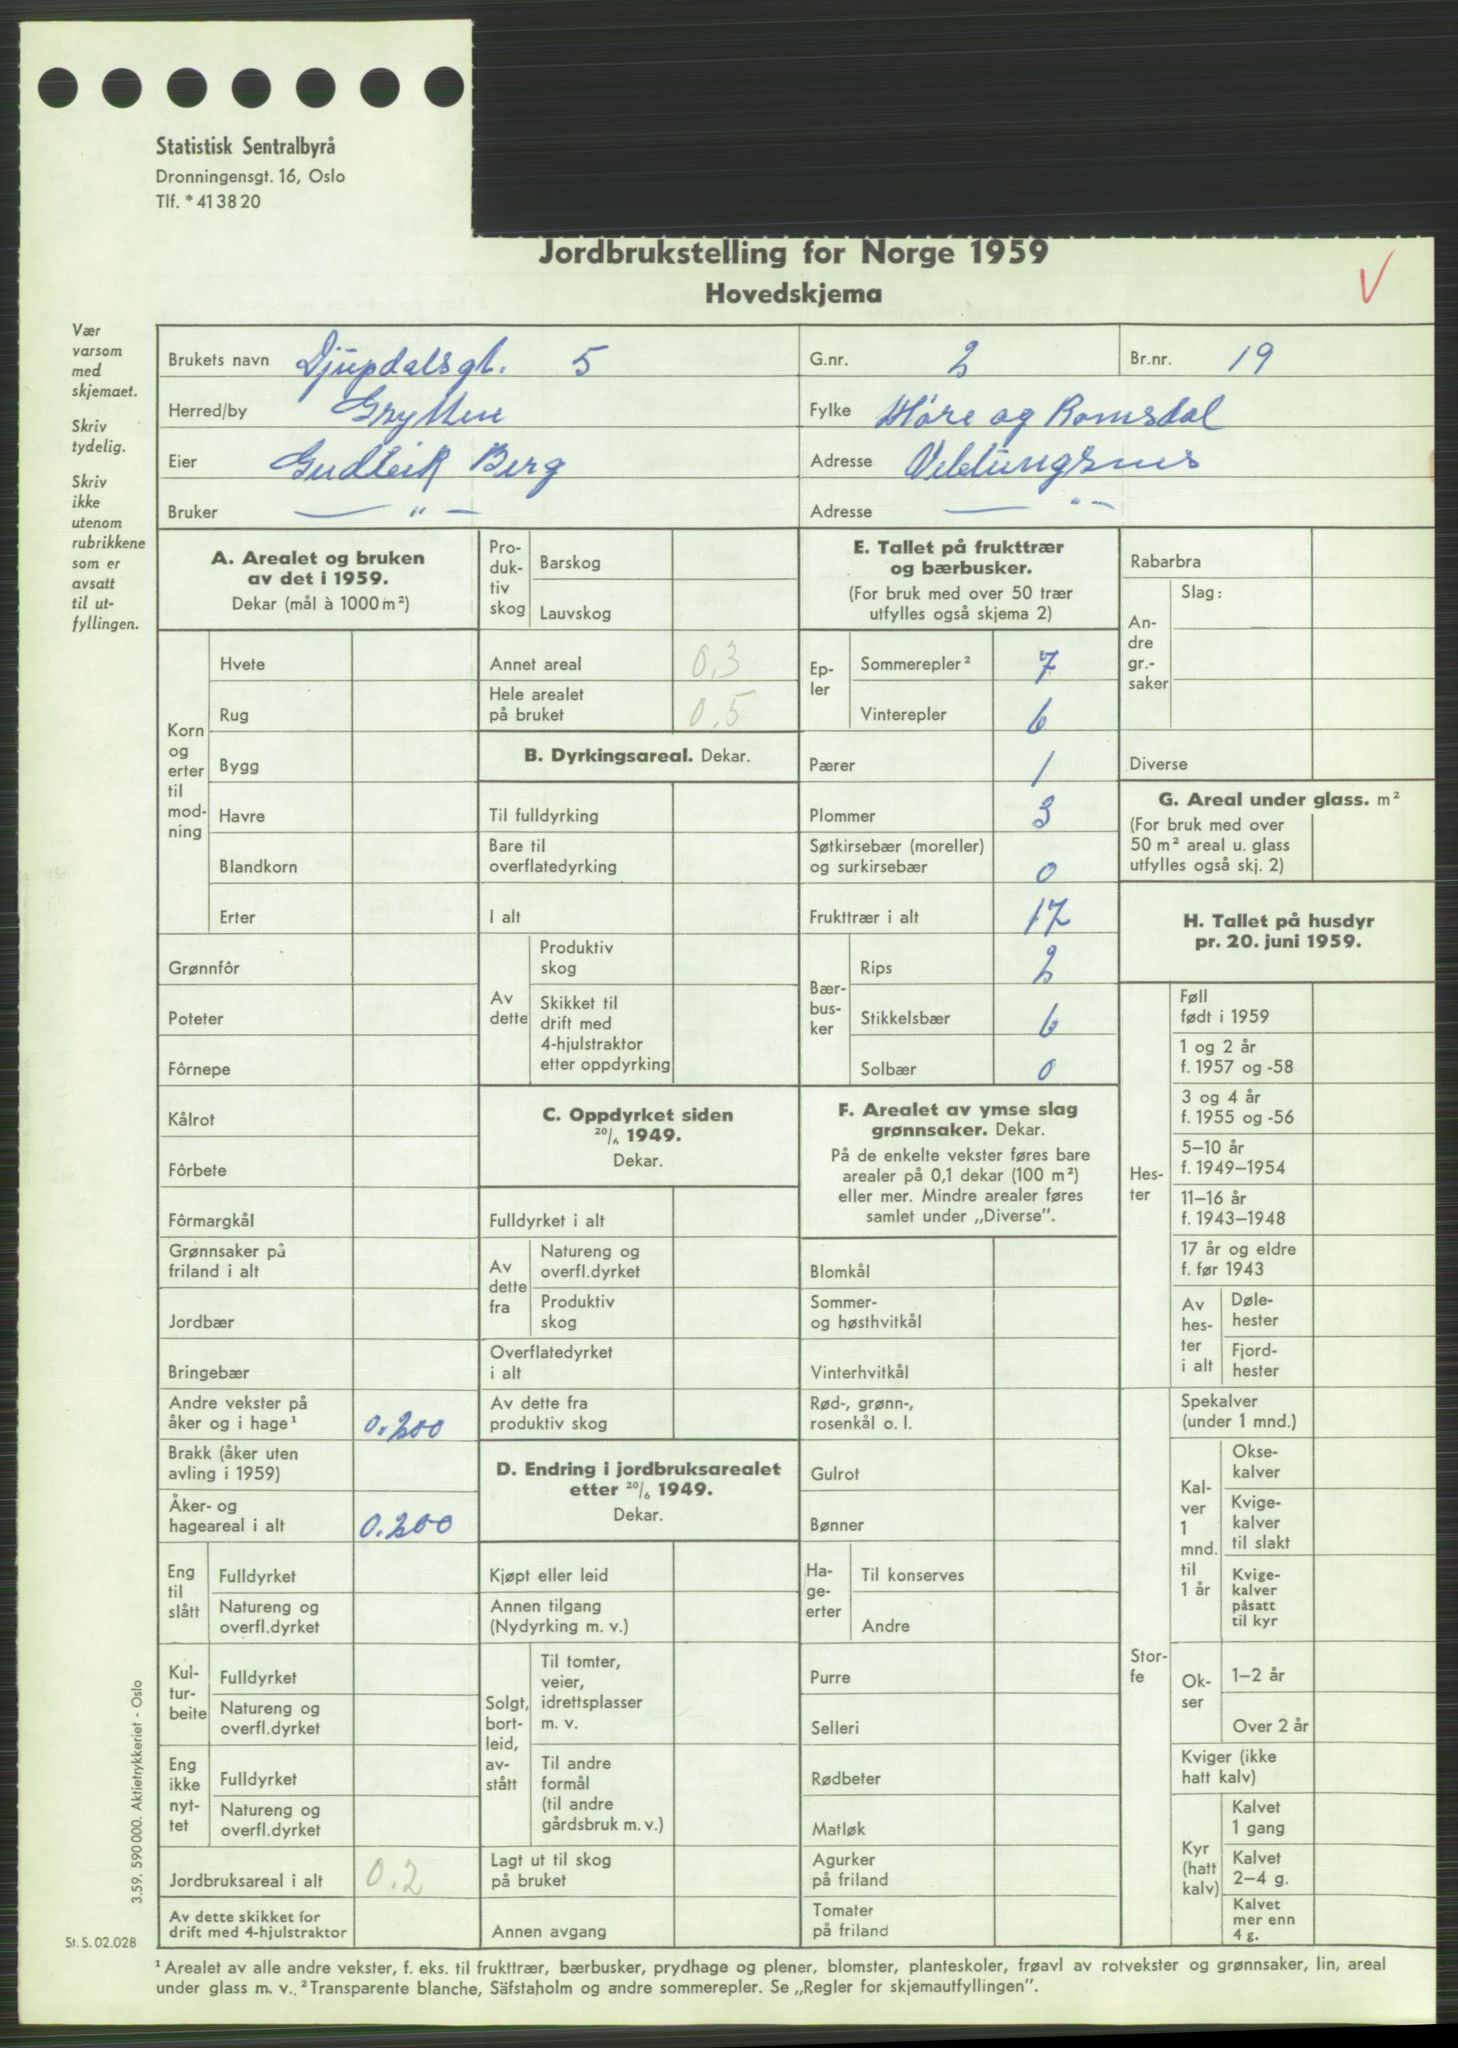 Statistisk Sentralbyrå
Dronningensgt. 16, Oslo
Tlf. * 41 38 20
Jordbrukstelling for Norge 1959
Hovedskjema
V
Vær
varsom
med
skjemaet.
Skriv
tydelig.
Skriv
ikke
utenom
rubrikkene
som er
avsatt
til ut-
fyllingen.
Brukets navn Djupdalsgt. 5 G.nr. 2 Br.nr. 19
Herred/by Grytten Fylke Møre og Romsdal
Eier Gudleik Berg Adresse Veblungsnes
Bruker — " — Adresse — " —
A. Arealet og bruken
av det i 1959.
Dekar (mål à 1000 m²)
Korn
og
erter
til
mod-
ning
Hvete
Rug
Bygg
Havre
Blandkorn
Erter
Grønnfôr
Poteter
Fôrnepe
Kålrot
Fôrbete
Fôrmargkål
Grønnsaker på
friland i alt
Jordbær
Bringebær
Andre vekster på
åker og i hage¹ 0.200
Brakk (åker uten
avling i 1959)
Åker- og
hageareal i alt 0.200
Eng
til
slått
Fulldyrket
Natureng og
overfl.dyrket
Kul-
tur-
beite
Fulldyrket
Natureng og
overfl.dyrket
Eng
ikke
nyt-
tet
Fulldyrket
Natureng og
overfl.dyrket
Jordbruksareal i alt 0.2
Av dette skikket for
drift med 4-hjulstraktor
Pro-
duk-
tiv
skog
Barskog
Lauvskog
Annet areal 0.3
Hele arealet
på bruket 0.5
B. Dyrkingsareal. Dekar.
Til fulldyrking
Bare til
overflatedyrking
I alt
Av
dette
Produktiv
skog
Skikket til
drift med
4-hjulstraktor
etter oppdyrking
C. Oppdyrket siden
20/6 1949.
Dekar.
Fulldyrket i alt
Av
dette
fra
Natureng og
overfl.dyrket
Produktiv
skog
Overflatedyrket
i alt
Av dette fra
produktiv skog
D. Endring i jordbruksarealet
etter 20/6 1949.
Dekar.
Kjøpt eller leid
Annen tilgang
(Nydyrking m. v.)
Solgt,
bort-
leid,
av-
stått
Til tomter,
veier,
idrettsplasser
m. v.
Til andre
formål
(til andre
gårdsbruk m. v.)
Lagt ut til skog
på bruket
Annen avgang
E. Tallet på frukttrær
og bærbusker.
(For bruk med over 50 trær
utfylles også skjema 2)
Ep-
ler
Sommerepler² 7
Vinterepler 6
Pærer 1
Plommer 3
Søtkirsebær (moreller)
og surkirsebær 0
Frukttrær i alt 17
Bær-
bus-
ker
Rips 2
Stikkelsbær 6
Solbær 0
F. Arealet av ymse slag
grønnsaker. Dekar.
På de enkelte vekster føres bare
arealer på 0,1 dekar (100 m²)
eller mer. Mindre arealer føres
samlet under „Diverse”.
Blomkål
Sommer-
og høsthvitkål
Vinterhvitkål
Rød-, grønn-,
rosenkål o. l.
Gulrot
Bønner
Ha-
ge-
erter
Til konserves
Andre
Purre
Selleri
Rødbeter
Matløk
Agurker
på friland
Tomater
på friland
Rabarbra
An-
dre
gr.-
saker
Slag:
Diverse
G. Areal under glass. m²
(For bruk med over
50 m² areal u. glass
utfylles også skj. 2)
H. Tallet på husdyr
pr. 20. juni 1959.
Hes-
ter
Føll
født i 1959
1 og 2 år
f. 1957 og -58
3 og 4 år
f. 1955 og -56
5–10 år
f. 1949–1954
11–16 år
f. 1943–1948
17 år og eldre
f. før 1943
Av
hes-
ter
i alt
Døle-
hester
Fjord-
hester
Stor-
fe
Spekalver
(under 1 mnd.)
Kal-
ver
1
mnd.
til
1 år
Okse-
kalver
Kvige-
kalver
til slakt
Kvige-
kalver
påsatt
til kyr
Ok-
ser
1–2 år
Over 2 år
Kviger (ikke
hatt kalv)
Kyr
(hatt
kalv)
Kalvet
1 gang
Kalvet
2–4 g.
Kalvet
mer enn
4 g.
3.59. 590 000. Aktietrykkeriet - Oslo
St. S. 02.028
¹ Arealet av alle andre vekster, f. eks. til frukttrær, bærbusker, prydhage og plener, blomster, planteskoler, frøavl av rotvekster og grønnsaker, lin, areal
under glass m. v.. ² Transparente blanche, Säfstaholm og andre sommerepler. Se „Regler for skjemautfyllingen”.